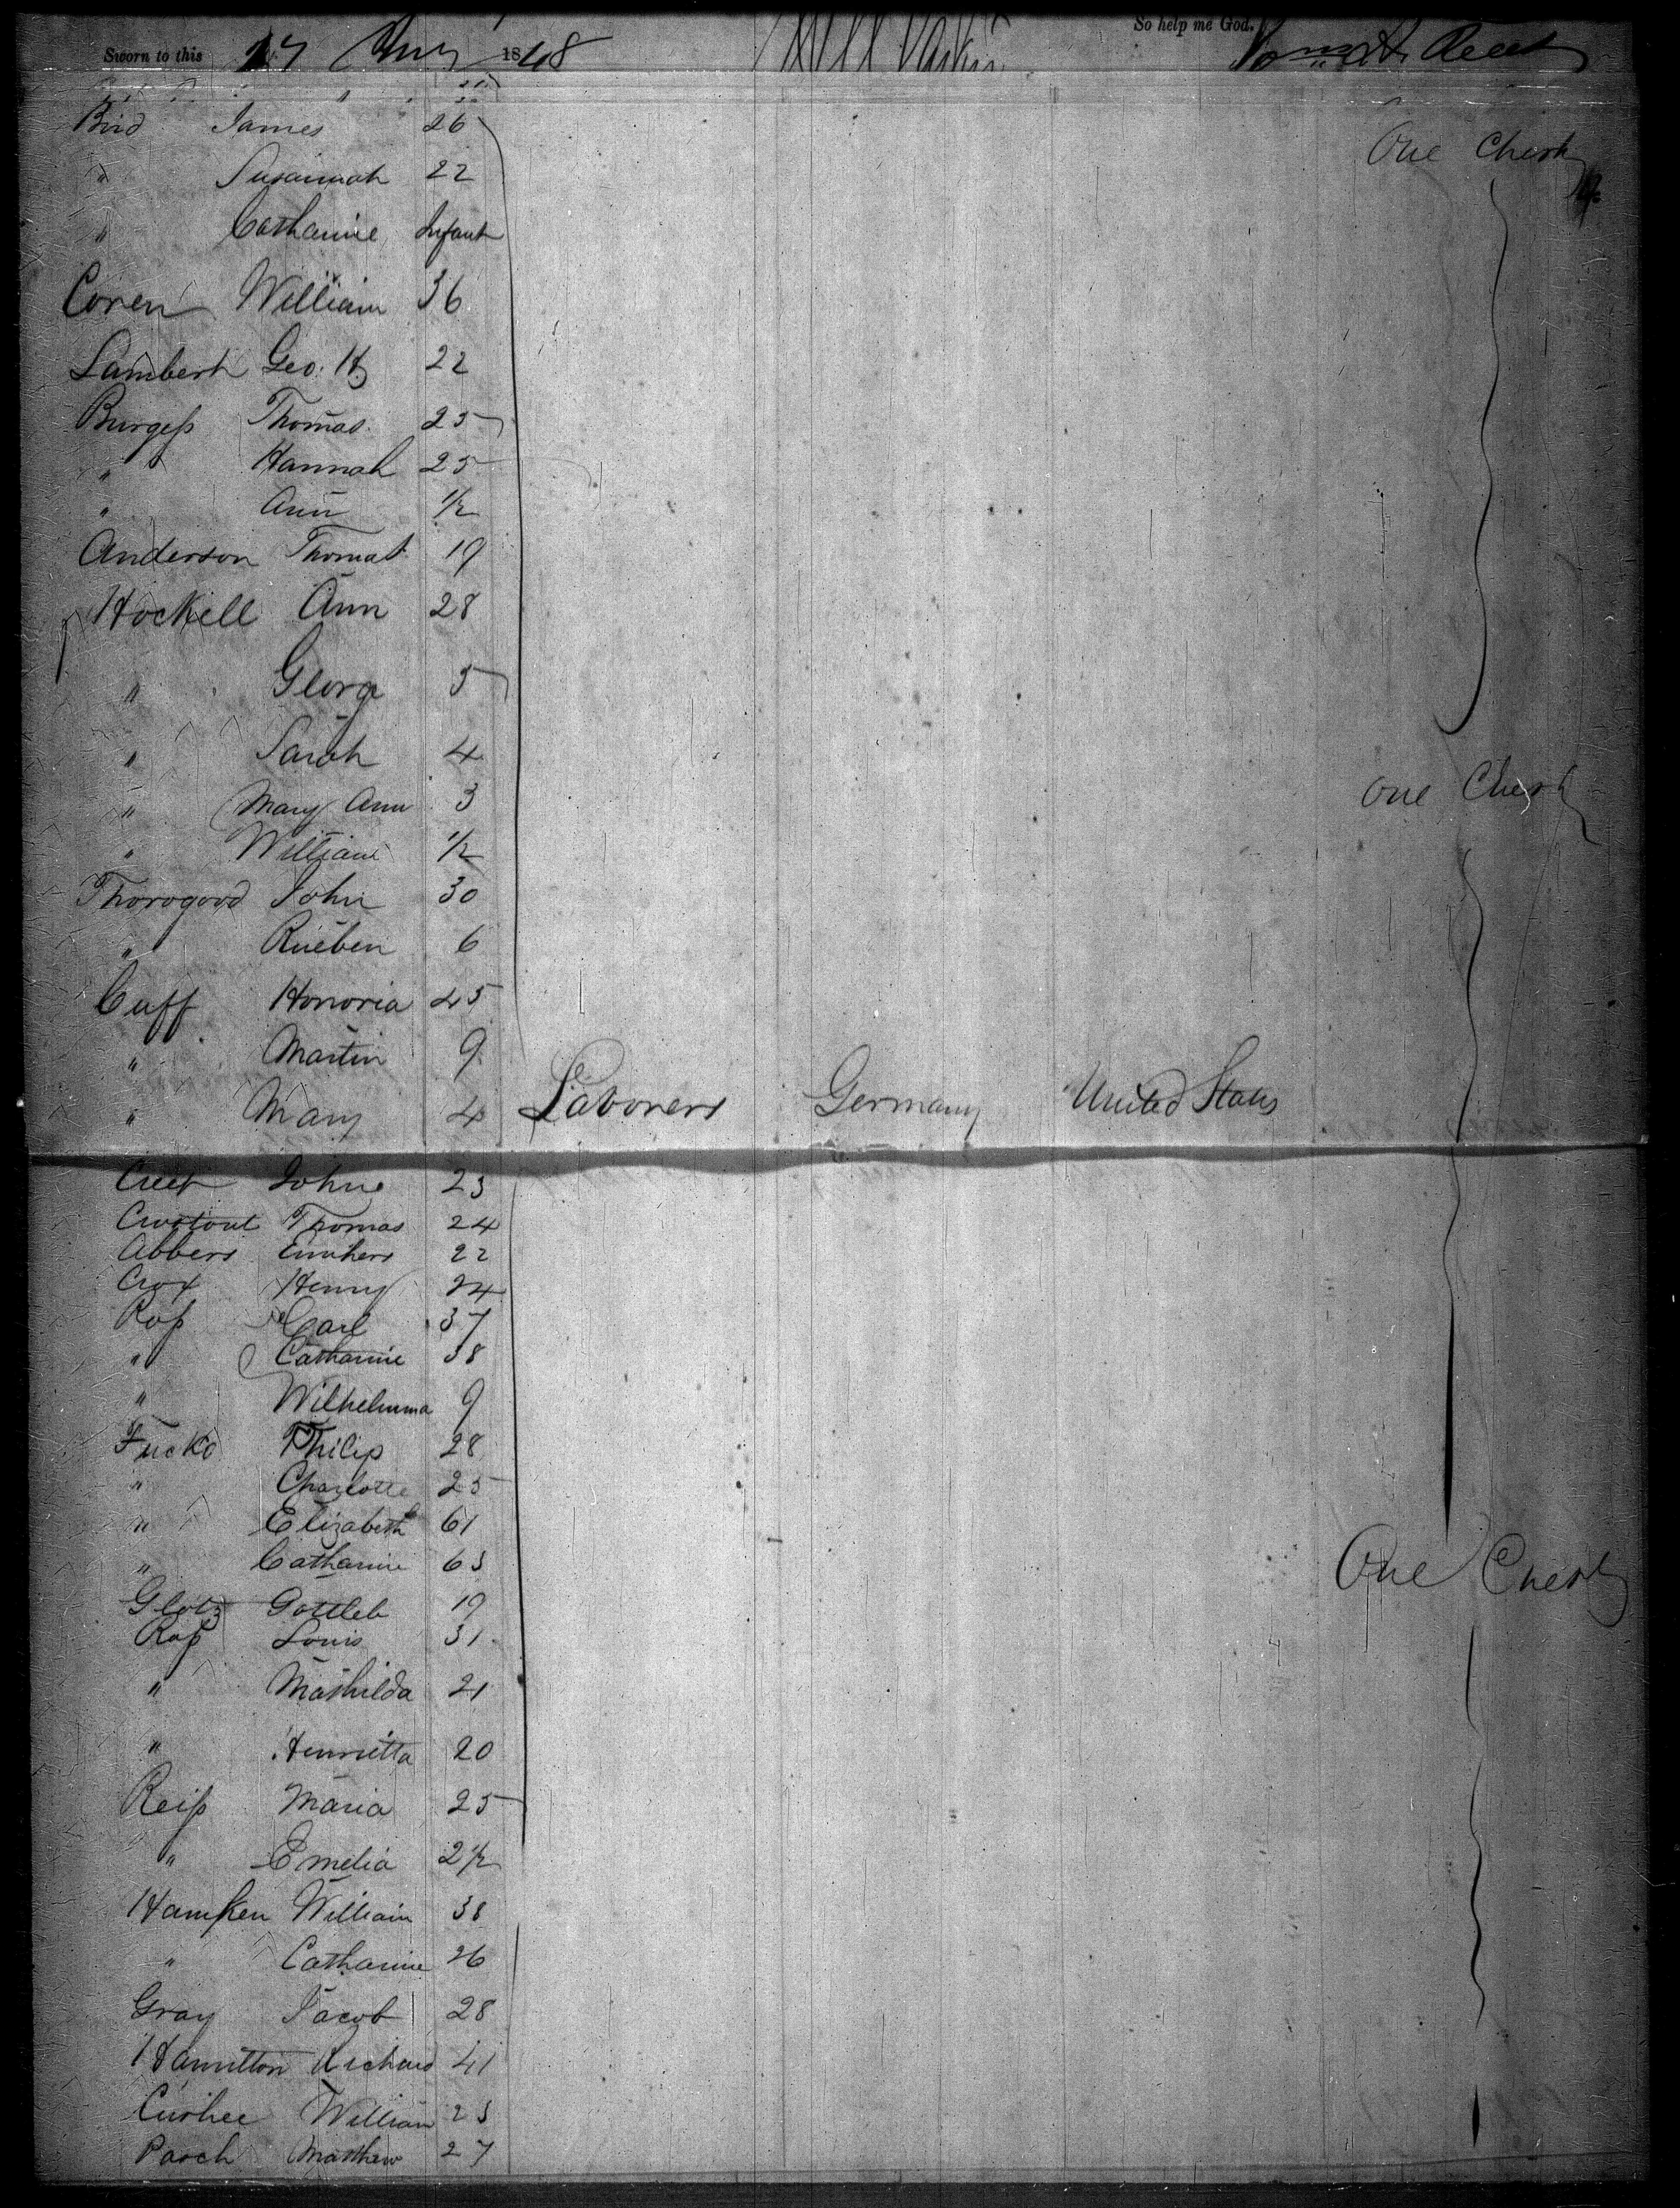 So help me God.
Sworn to this 17 Aug 1848
Bird James 26 One Chest
" Susannah 22
" Catharine Infant
Coren William 36
Lambert Geo. H 22
Burgeſs Thomas 25
" Hannah 25
" Ann 1/2
Anderson Thomas 19
Hockell Ann 28
" Georg 5
" Sarah 4
" Mary Ann 3 One Chest
" William 1/2
Thorogood John 30
" Rueben 6
Cuff Honoria 45
" Martin 9
" Mary 4 Laborers Germany United States
John 23
Thomas 24
Abbers 22
Crox Henry 24
Roſs Carl 37
" Catharine 38
" Wilhelmina 9
Fucko Philip 28
" Charlotte 25
" Elizabeth 61
" Catharine 63 One Chest
Glotz Gottleb 19
Roſs Louis 31
" Mathilda 21
" Henrietta 20
Reiſs Maria 25
" Emelia 2 1/2
Hamken William 38
" Catharine 26
Gray Jacob 28
Hamilton Richard 41
William 23
Pasch Matthew 27